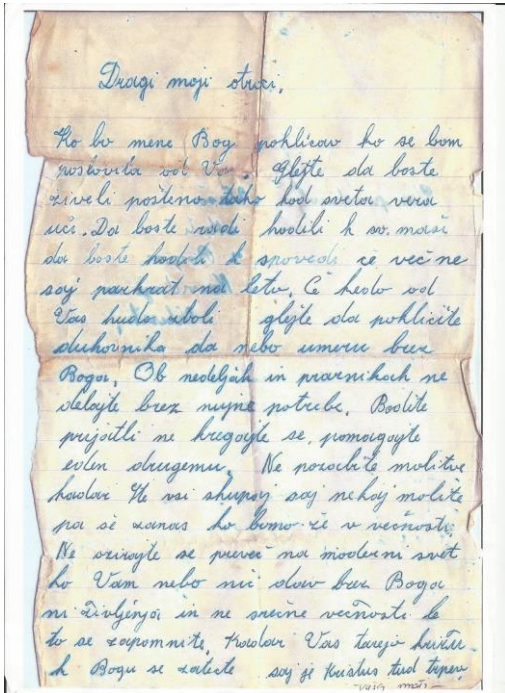 Dragi moji otroci.
Ko bo mene Bog pohlicav ko se bom
poslovila od Vas. Glejte da boste
živeli pošteno tako kod sveta vera
uči. Da boste radi hodili k sv. maši
da boste hodoli k spovedi če več ne
saj parkrat na letu. Če kedo od
Vas hudo zboli glejte da pokličite
duhovnika da nebo umeru brez
Boga. Ob nedeljah in praznikah ne
delajte brez nujne potrebe. Bodite
prijatli ne kregajte se, pomagajte
eden drugemu. Ne pozabite molitve
kadar ste vsi skupaj saj nekaj molite
pa še zanas ko bomo že v večnosti.
Ne ozirajte se preveč na moderni svet
ko Vam nebo nič dav brez Boga
ni življenja in ne srečne večnosti le
to se zapomnite, kadar Vas tarejo križi
k Bogu se zatecte saj je Kristus tud trpev
vaša mati